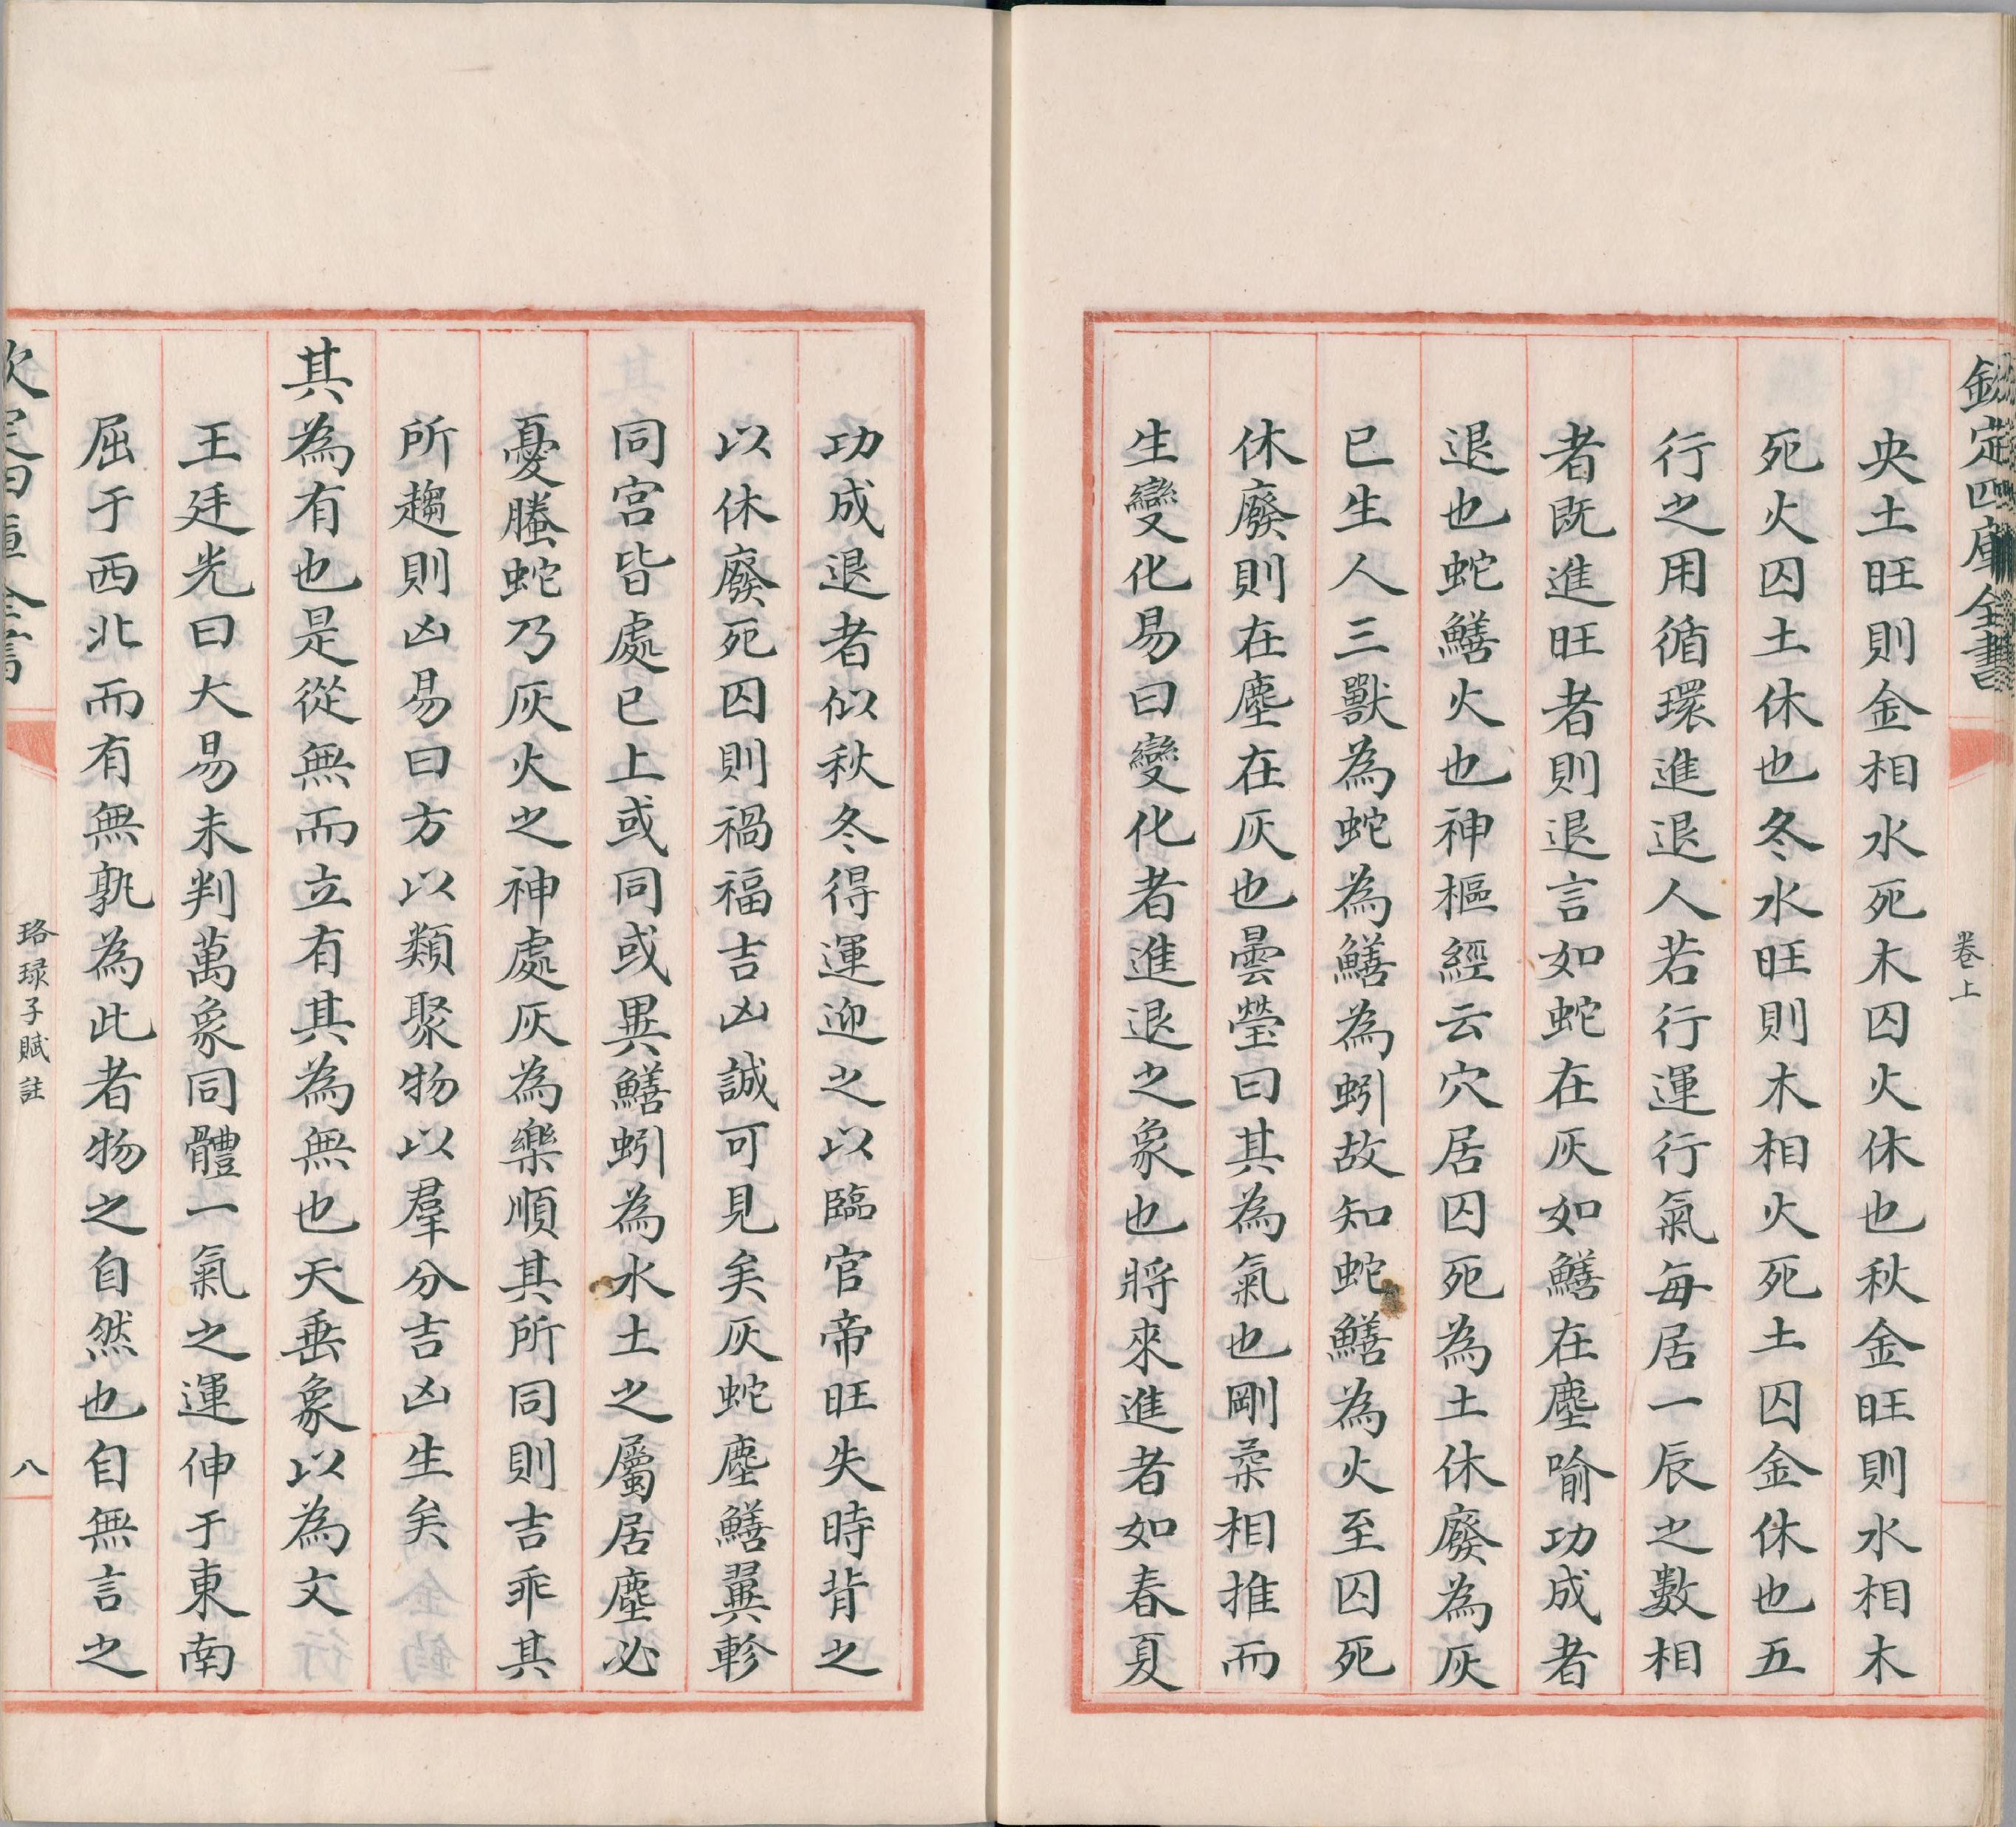 欽定四庫全書
卷上
央土旺則金相水死木囚火休也秋金旺則水相木
死火囚土休也冬水旺則木相火死土囚金休也五
行之用循環進退人若行運行氣每居一辰之數相
者既進旺者則退言如蛇在灰如鱔在塵喻功成者
退也蛇鱔火也神樞經云穴居囚死為土休廢為灰
巳生人三獸為蛇為鱔為蚓故知蛇鱔為火至囚死
休廢則在塵在灰也曇瑩曰其為氣也剛柔相推而
生變化易曰變化者進退之象也將來進者如春夏
功成退者似秋冬得運迎之以臨官帝旺失時背之
以休廢死囚則禍福吉凶誠可見矣灰蛇塵鱔翼軫
同宮皆處巳上或同或異鱔蚓為水土之屬居塵必
憂螣蛇乃灰火之神處灰為樂順其所同則吉乖其
所趨則凶易曰方以類聚物以羣分吉凶生矣
其為有也是從無而立有其為無也天垂象以為文
王廷光曰大易未判萬象同體一氣之運伸于東南
屈于西北而有無孰為此者物之自然也自無言之
欽定四庫全書
珞琭子賦註
八